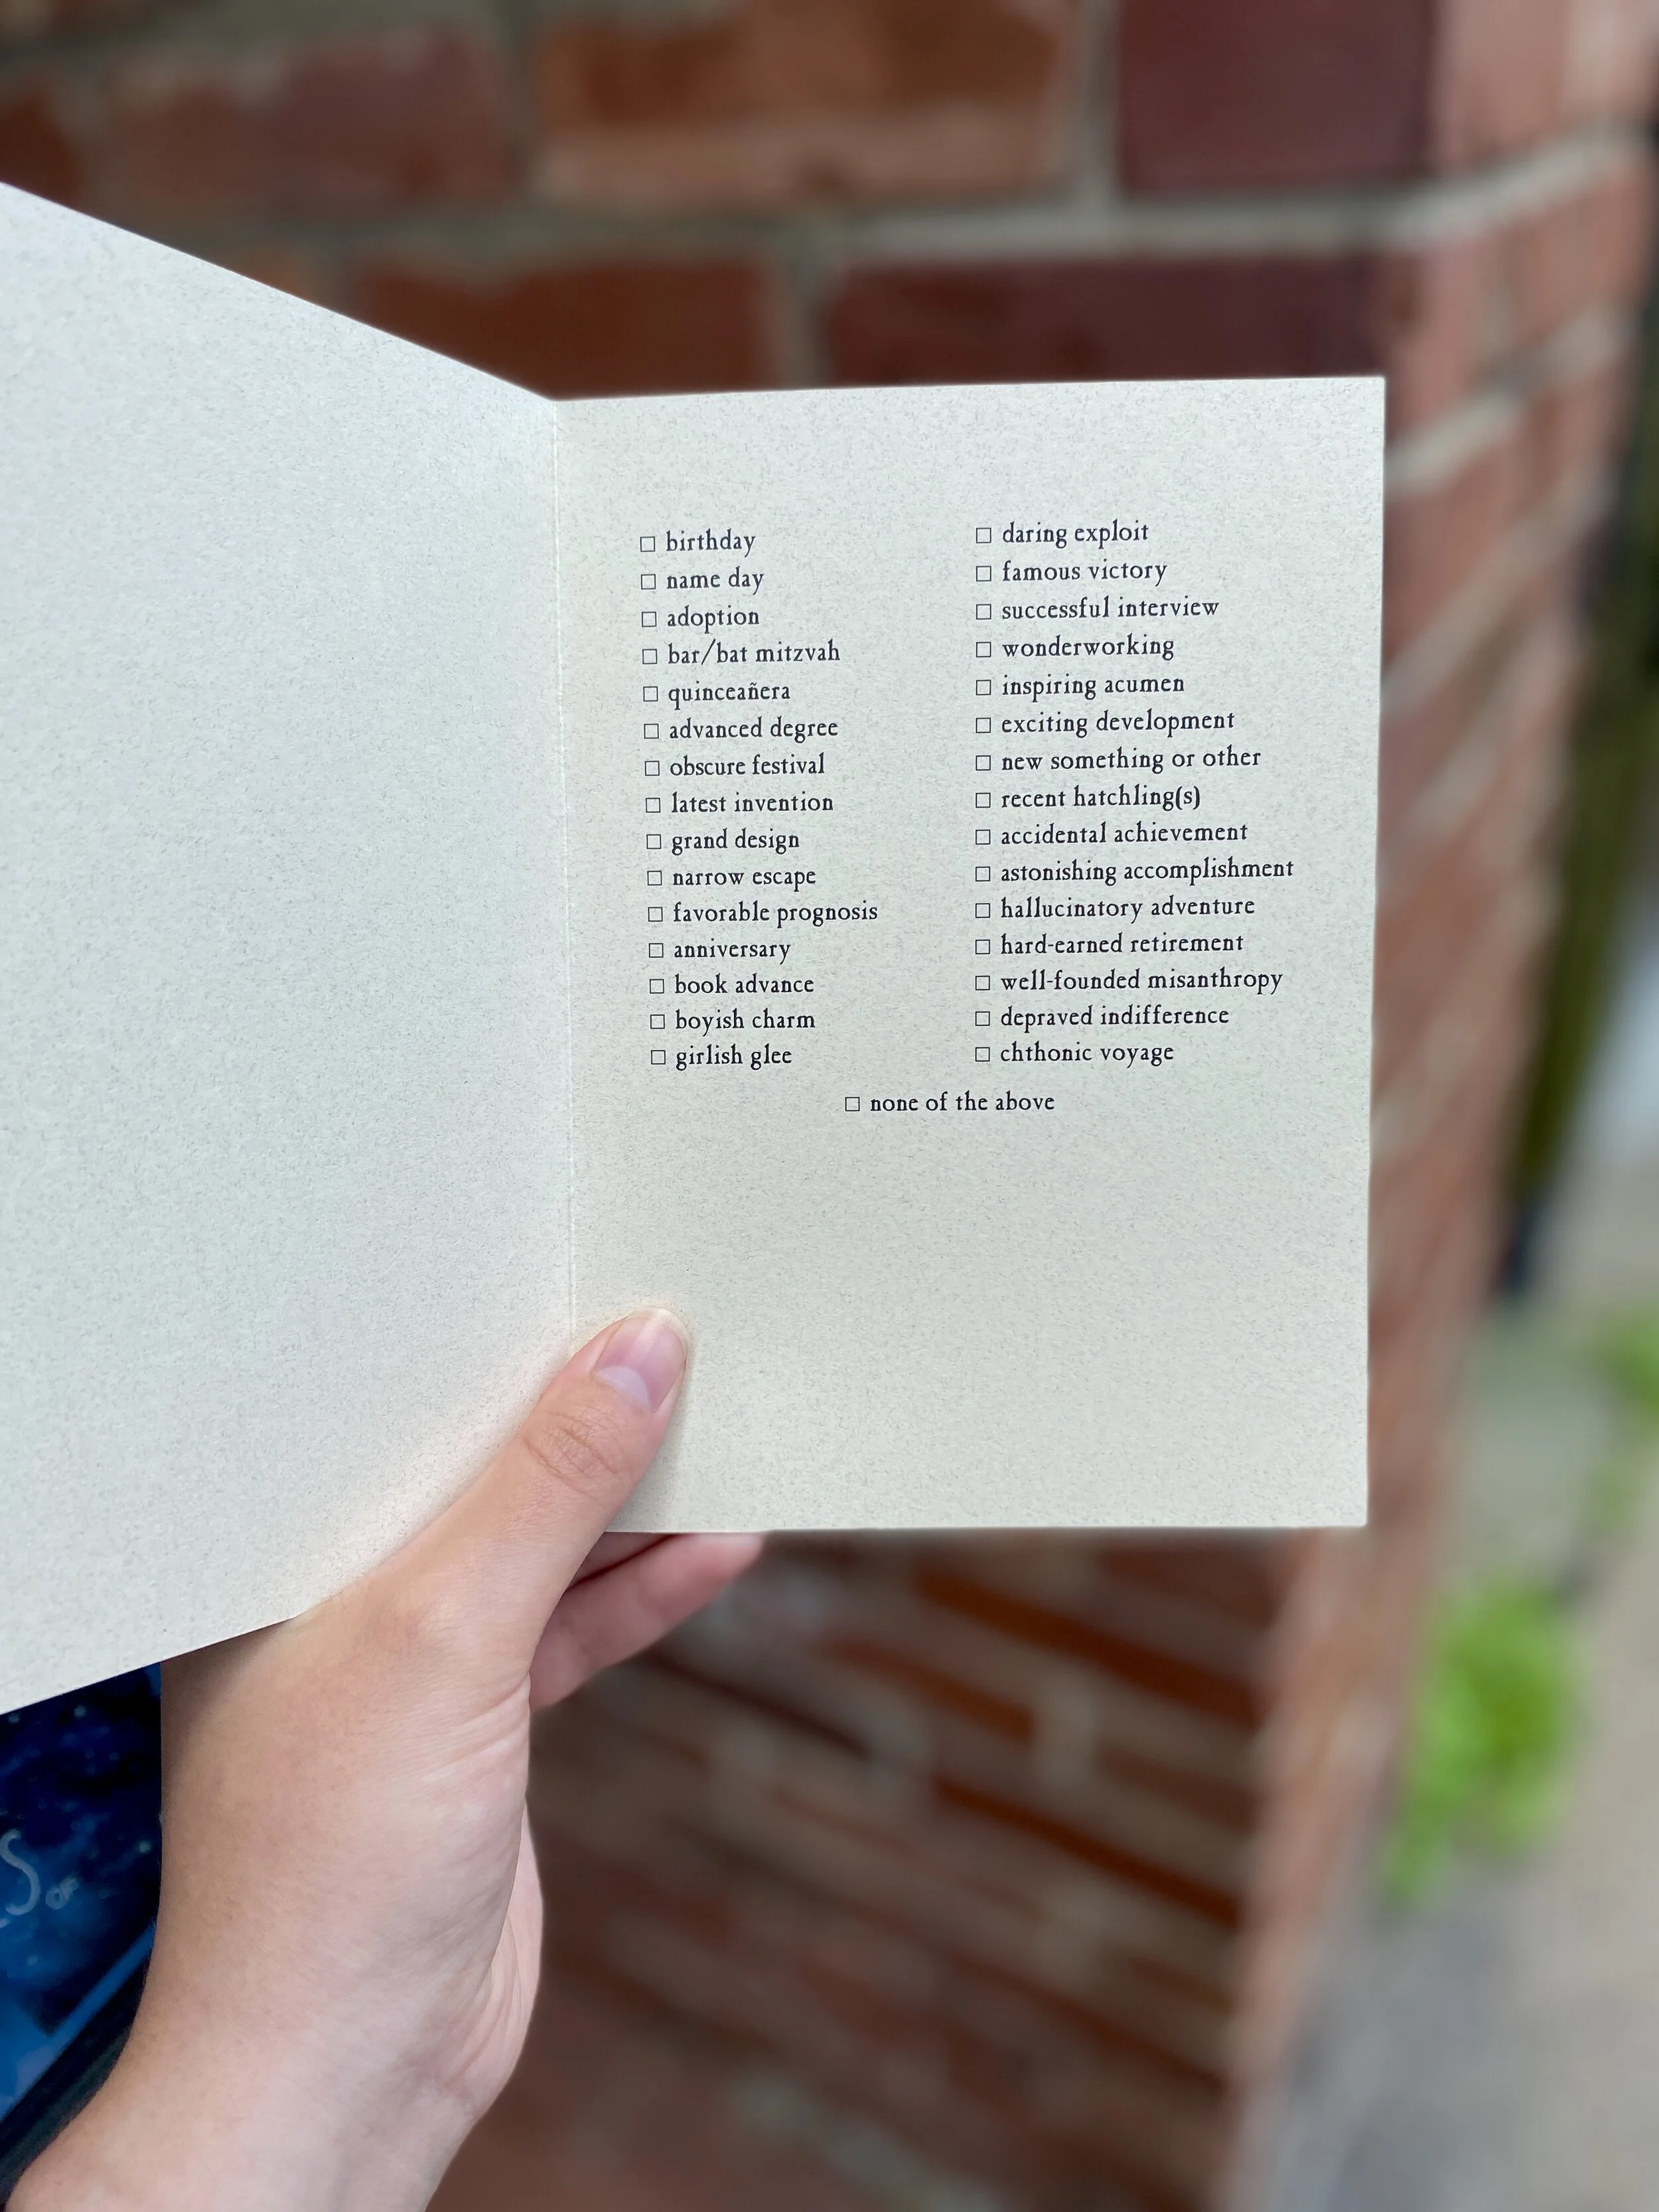 ☐ birthday
☐ name day
☐ adoption
☐ bar/bat mitzvah
☐ quinceañera
☐ advanced degree
☐ obscure festival
☐ latest invention
☐ grand design
☐ narrow escape
☐ favorable prognosis
☐ anniversary
☐ book advance
☐ boyish charm
☐ girlish glee
☐ daring exploit
☐ famous victory
☐ successful interview
☐ wonderworking
☐ inspiring acumen
☐ exciting development
☐ new something or other
☐ recent hatchling(s)
☐ accidental achievement
☐ astonishing accomplishment
☐ hallucinatory adventure
☐ hard-earned retirement
☐ well-founded misanthropy
☐ depraved indifference
☐ chthonic voyage
☐ none of the above
OF